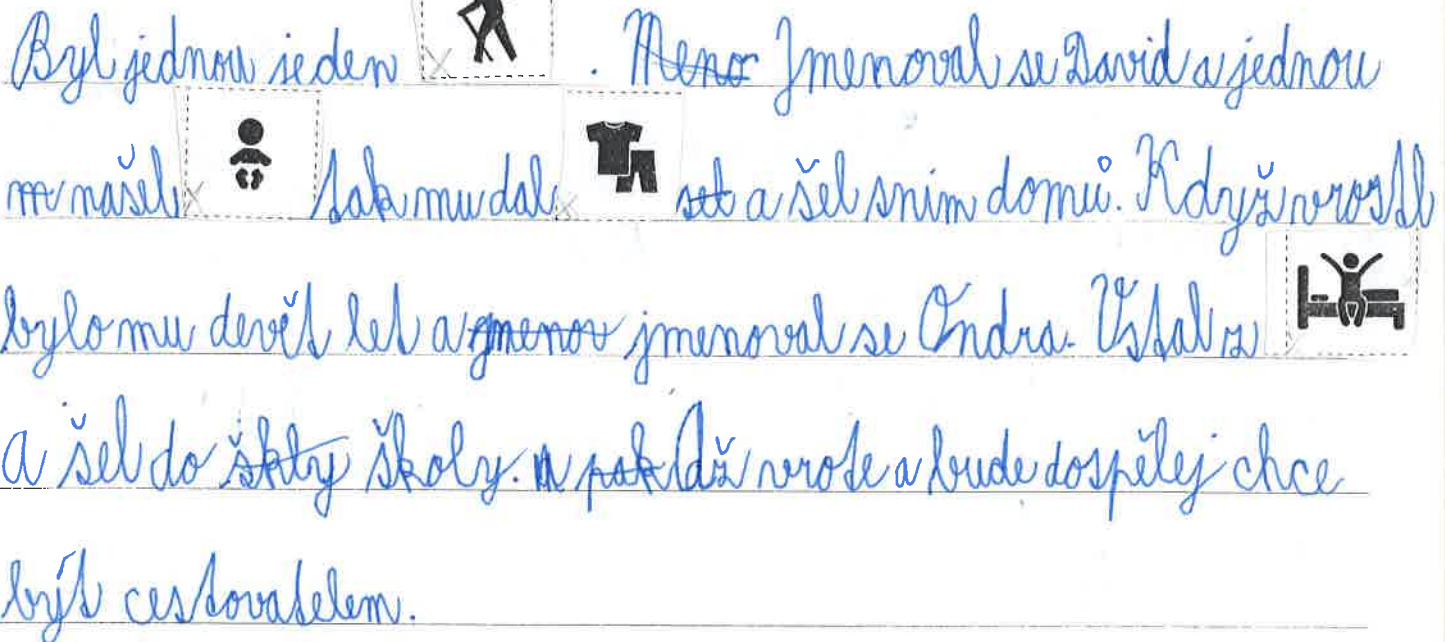 Byl jednou jeden . Meno Jmenoval se David a jednou
m našel tak mu dal set a šel sním domů. Když vrostl
bylo mu devět let a jmenov jmenoval se Ondra. Vstal z
a šel do škty školy. A pak Až vroste a bude dospělej chce
být cestovatelem.